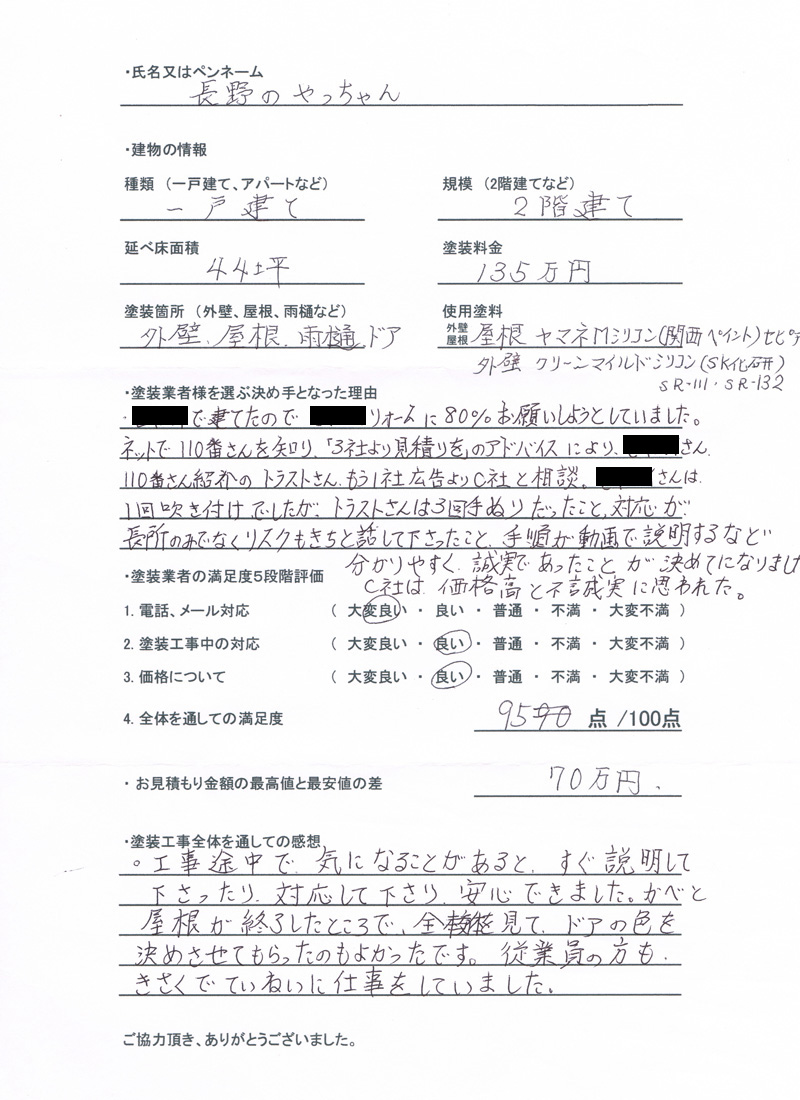 ・氏名又はペンネーム
長野のやっちゃん
・建物の情報
種類 （一戸建て、アパートなど） 規模 （2階建てなど）
一戸建て 2階建て
延べ床面積 塗装料金
44坪 135万円
塗装箇所 （外壁、屋根、雨樋など） 使用塗料
外壁、屋根、雨樋、ドア 外壁 屋根 屋根 ヤマネMシリコン(関西ペイント)セピア
外壁 クリーンマイルドシリコン(SK化研)
SR-111、SR-132
・塗装業者様を選ぶ決め手となった理由
・で建てたので リォームに80%お願いしようとしていました。
ネットで110番さんを知り、「3社より見積りを」のアドバイスにより、さん、
110番さん紹介のトラストさん、もう1社広告よりC社と相談。さんは
1回吹き付けでしたが、トラストさんは3回手ぬりだったこと、対応が
長所のみでなくリスクもきちと話して下さったこと、手順が動画で説明するなど
分かりやすく、誠実であったことが決めてになりまし
C社は、価格高と不誠実に思われた。
・塗装業者の満足度5段階評価
1. 電話、メール対応 （ 大変良い ・ 良い ・ 普通 ・ 不満 ・ 大変不満 ）
2. 塗装工事中の対応 （ 大変良い ・ 良い ・ 普通 ・ 不満 ・ 大変不満 ）
3. 価格について （ 大変良い ・ 良い ・ 普通 ・ 不満 ・ 大変不満 ）
4. 全体を通しての満足度 95 点 /100点
・ お見積もり金額の最高値と最安値の差 70万円、
・塗装工事全体を通しての感想
○工事途中で、気になることがあると、すぐ説明して
下さったり、対応して下さり、安心できました。かべと
屋根が終了したところで、全体を見て、ドアの色を
決めさせてもらったのもよかったです。従業員の方も、
きさくでていねいに仕事をしていました。
ご協力頂き、ありがとうございました。